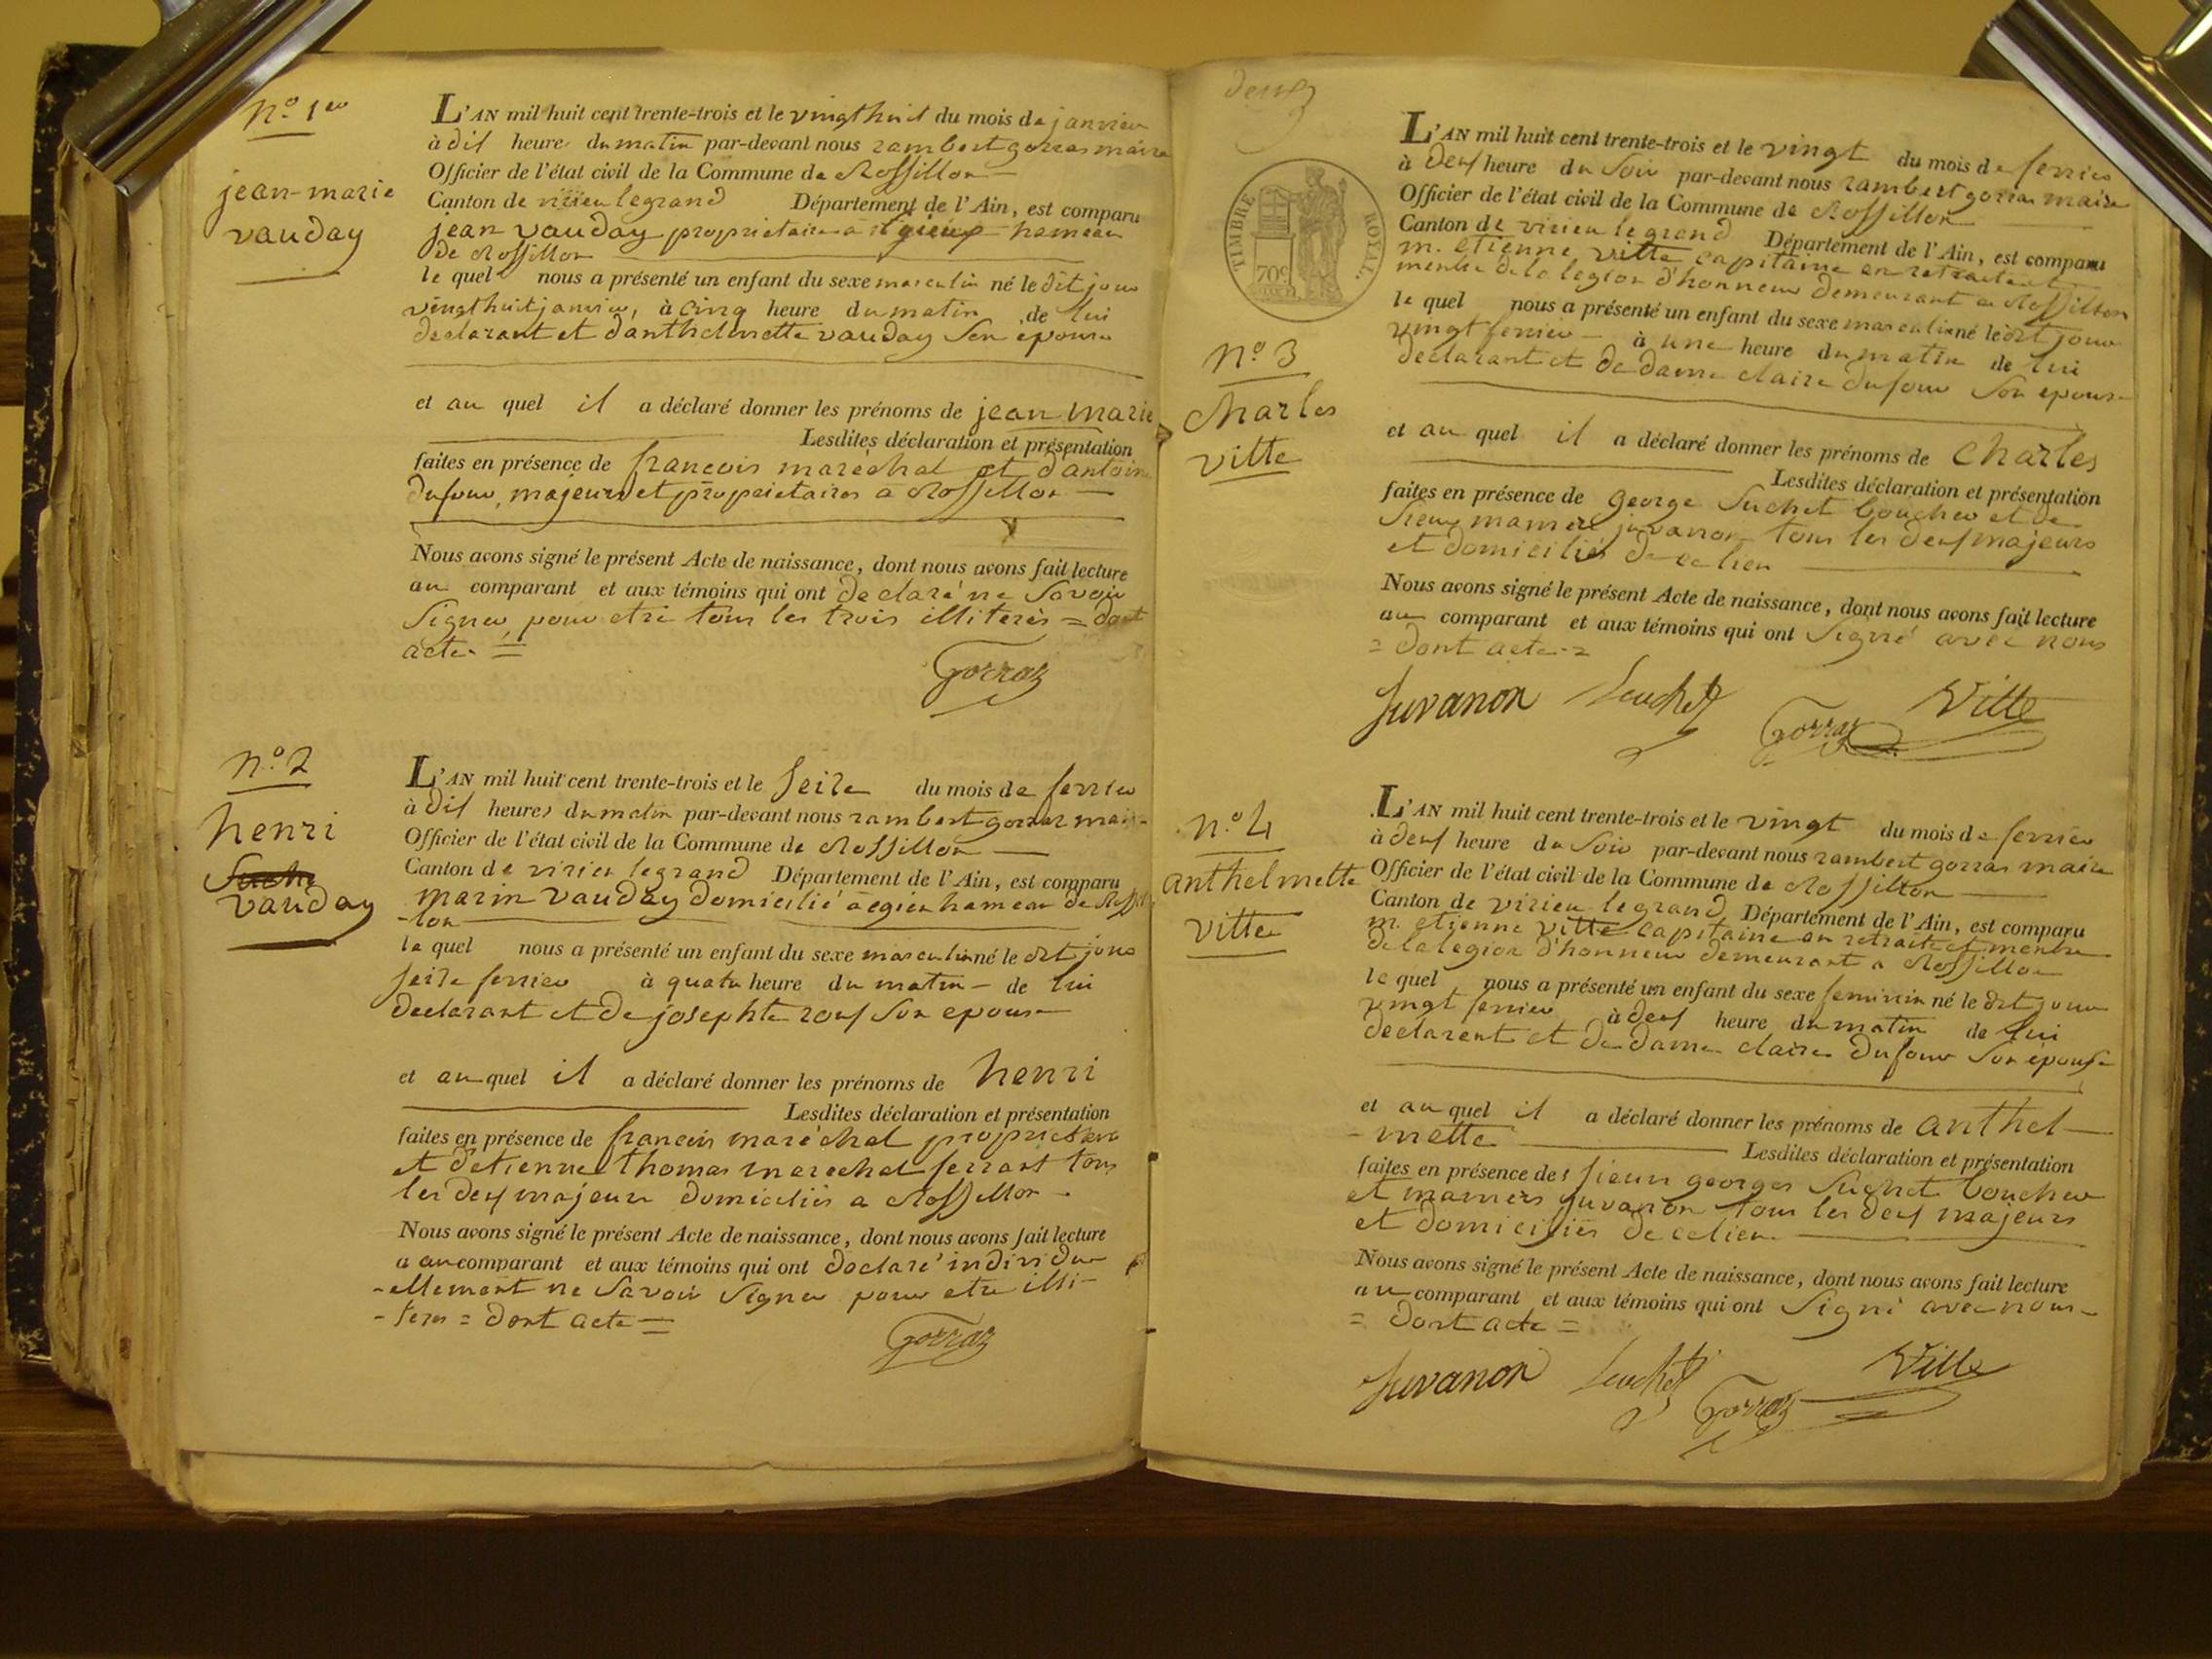 N.o 1er
jean-marie
vauday
L'AN mil huit cent trente-trois et le vingt huit du mois de janvier
à dix heure du matin par-devant nous rambert gorras maire
Officier de l'état civil de la Commune de Rossillon
Canton de virieu legrand Département de l'Ain, est comparu
jean vauday proprietaire a hameau
de Rossillon
le quel nous a présenté un enfant du sexe masculin né le dit jour
vingt huit janvier, à cinq heure du matin de lui
declarant et d'anthelmette vauday son epouse
et au quel il a déclaré donner les prénoms de jean marie
Lesdites déclaration et présentation
faites en présence de francois maréchal et d'antoine
dufour, majeurs et proprietaires a Rossillon
Nous avons signé le présent Acte de naissance, dont nous avons fait lecture
au comparant et aux témoins qui ont declaré ne savoir
signer, pour etre tous les trois illiterés = dont
acte =
Gorraz
N.o 2
henri
vauday
L'AN mil huit cent trente-trois et le seize du mois de fevrier
à dix heures du matin par-devant nous rambert gorraz maire
Officier de l'état civil de la Commune de Rossillon
Canton de virieu legrand Département de l'Ain, est comparu
marin vauday domicilié a egieu hameau de Rossil
-lon
le quel nous a présenté un enfant du sexe masculin né le dit jour
seize fevrier à quatre heure du matin - de lui
declarant et de josephte roux son epouse
et au quel il a déclaré donner les prénoms de henri
Lesdites déclaration et présentation
faites en présence de francois maréchal proprietaire
et d'etienne thomas marechal ferrant tous
les deux majeurs domiciliés a Rossillon
Nous avons signé le présent Acte de naissance, dont nous avons fait lecture
a au comparant et aux témoins qui ont declaré individu
-ellement ne savoir signer pour etre illi-
-terés = dont acte =
Gorraz
deux
TIMBRE ROYAL.
70c
N.o 3
Charles
vitte
L'AN mil huit cent trente-trois et le vingt du mois de fevrier
à deux heure du soir par-devant nous rambert gorras maire
Officier de l'état civil de la Commune de Rossillon
Canton de virieu le grand Département de l'Ain, est comparu
m. etienne vitte capitaine en retraite et
menbre de la legion d'honneur demeurant a Rossillon
le quel nous a présenté un enfant du sexe masculin né le dit jour
vingt fevrier - à une heure du matin de lui
declarant et de dame claire dufour son epouse
et au quel il a déclaré donner les prénoms de Charles
Lesdites déclaration et présentation
faites en présence de george Suchet boucher et de
sieur mamers juvanon tous les deux majeurs
et domiciliés de ce lieu
Nous avons signé le présent Acte de naissance, dont nous avons fait lecture
au comparant et aux témoins qui ont signé avec nous
= dont acte =
Juvanon Suchet Gorraz Vitte
N.o 4
anthelmette
vitte
L'AN mil huit cent trente-trois et le vingt du mois de fevrier
à deux heure du soir par-devant nous rambert gorras maire
Officier de l'état civil de la Commune de Rossillon
Canton de virieu le grand Département de l'Ain, est comparu
m. etienne vitte capitaine en retraite et menbre
de la legion d'honneur demeurant a Rossillon
le quel nous a présenté un enfant du sexe feminin né le dit jour
vingt fevrier à deux heure du matin de lui
declarant et de dame claire dufour son épouse
et au quel il a déclaré donner les prénoms de anthel-
-mette
Lesdites déclaration et présentation
faites en présence des sieurs georges Suchet boucher
et mamers juvanon tous les deux majeurs
et domiciliés de ce lieu
Nous avons signé le présent Acte de naissance, dont nous avons fait lecture
au comparant et aux témoins qui ont signé avec nous
= dont acte =
Juvanon Suchet Gorraz Vitte